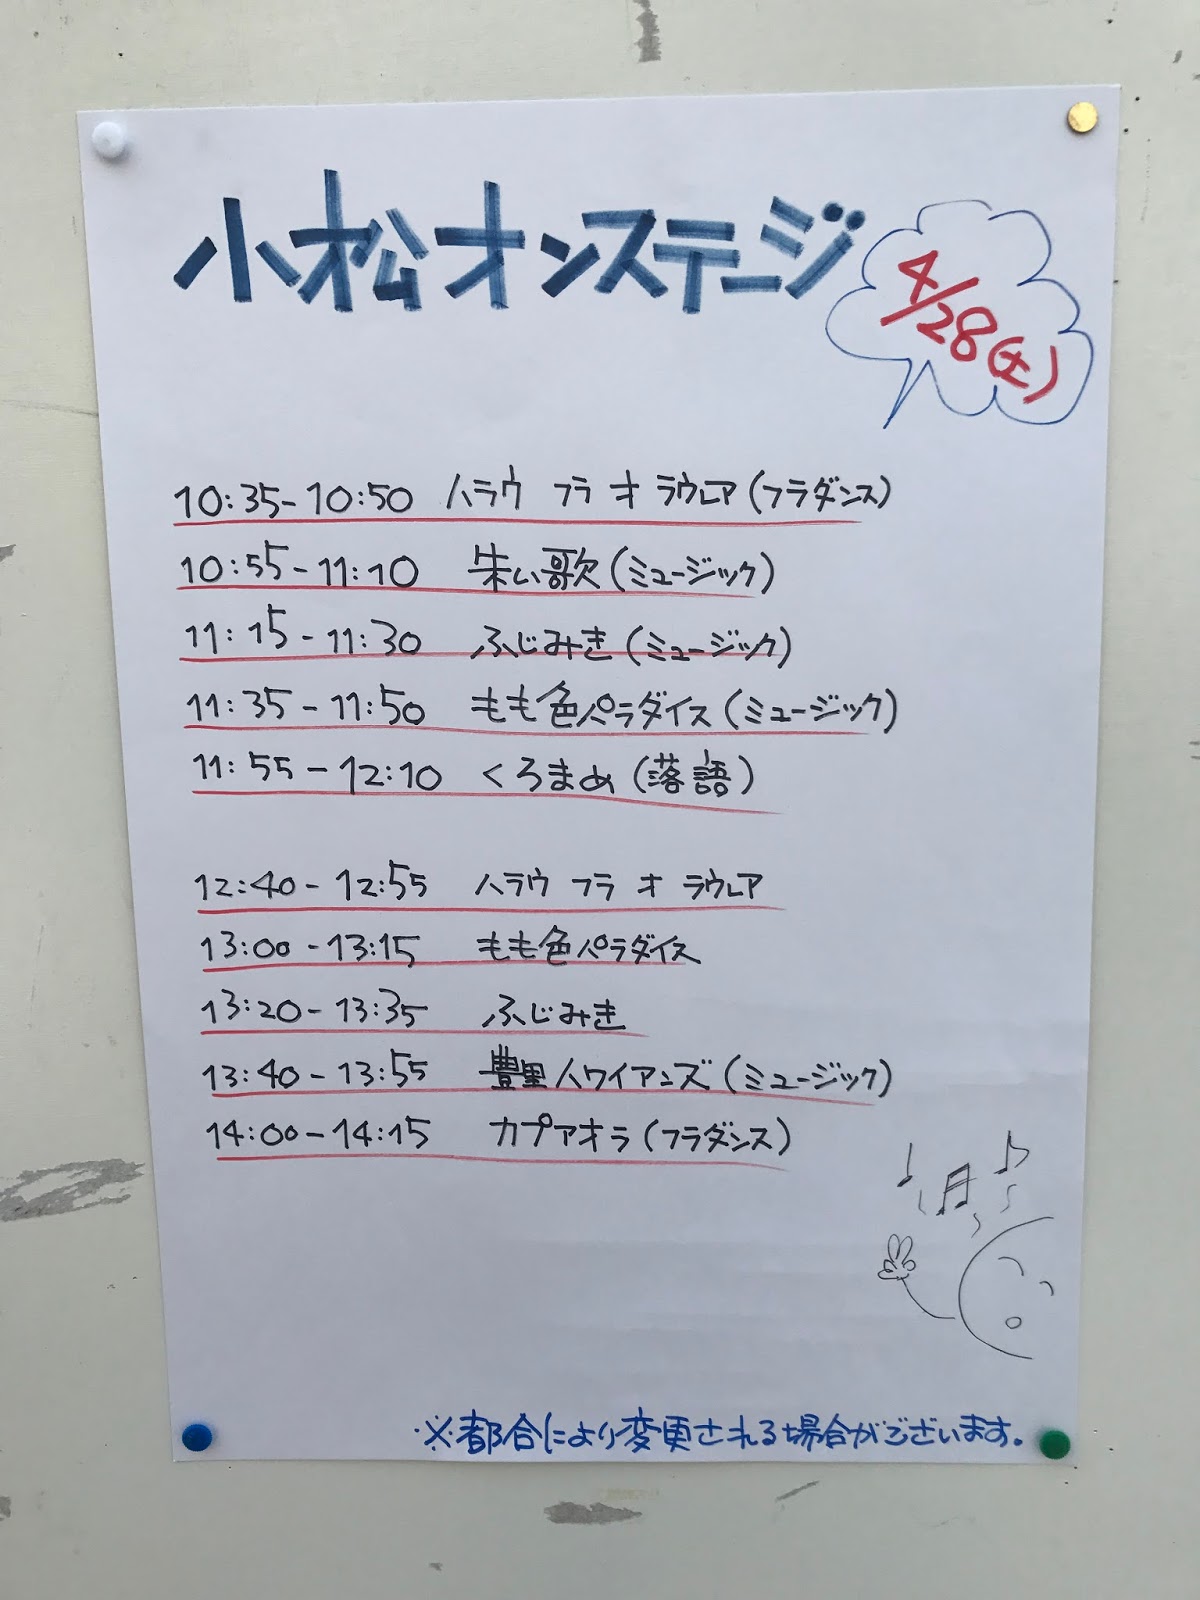 小松オンステージ
4/28(土)
10:35-10:50 ハラウ フラ オ ラウレア(フラダンス)
10:55-11:10 朱い歌(ミュージック)
11:15-11:30 ふじみき(ミュージック)
11:35-11:50 もも色パラダイス(ミュージック)
11:55-12:10 くろまめ(落語)
12:40-12:55 ハラウ フラ オ ラウレア
13:00-13:15 もも色パラダイス
13:20-13:35 ふじみき
13:40-13:55 豊里ハワイアンズ(ミュージック)
14:00-14:15 カプアオラ(フラダンス)
※都合により変更される場合がございます。